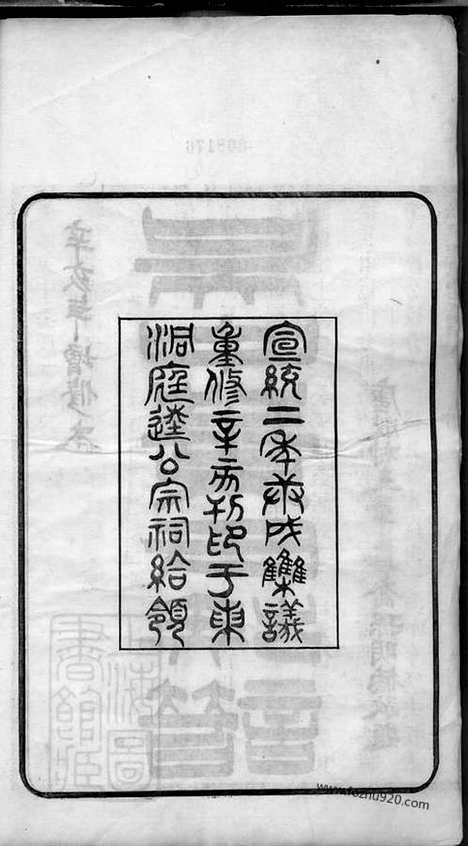 宣統二年庚戌雧議
重修辛亥刊印于東
洞庭逵公宗祠給領
www.fozhu920.com